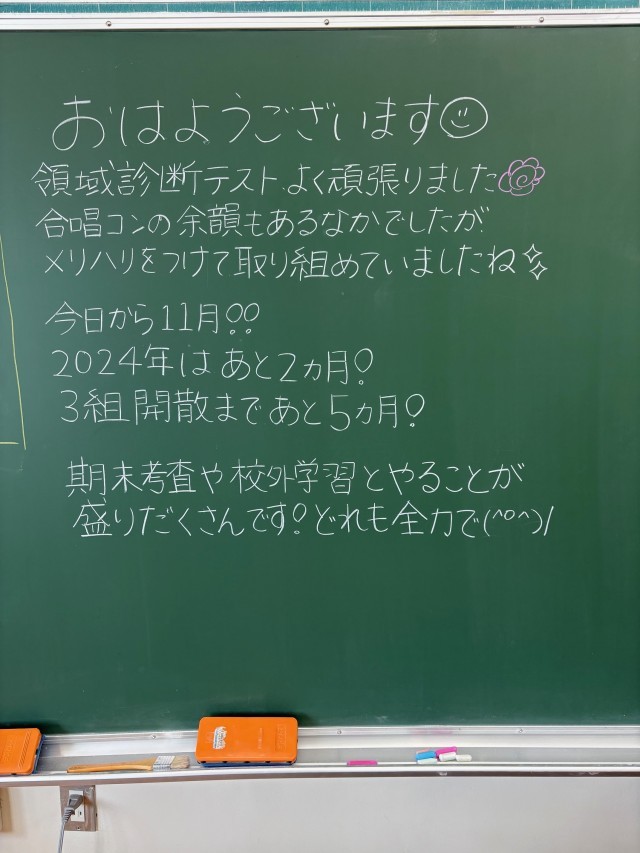 おはようございます
領域診断テスト、よく頑張りました
合唱コンの余韻もあるなかでしたが
メリハリをつけて取り組めていましたね
今日から11月!!
2024年はあと2ヵ月!
3組開散まであと5ヵ月!
期末考査や校外学習とやることが
盛りだくさんです!どれも全力で(^o^)/